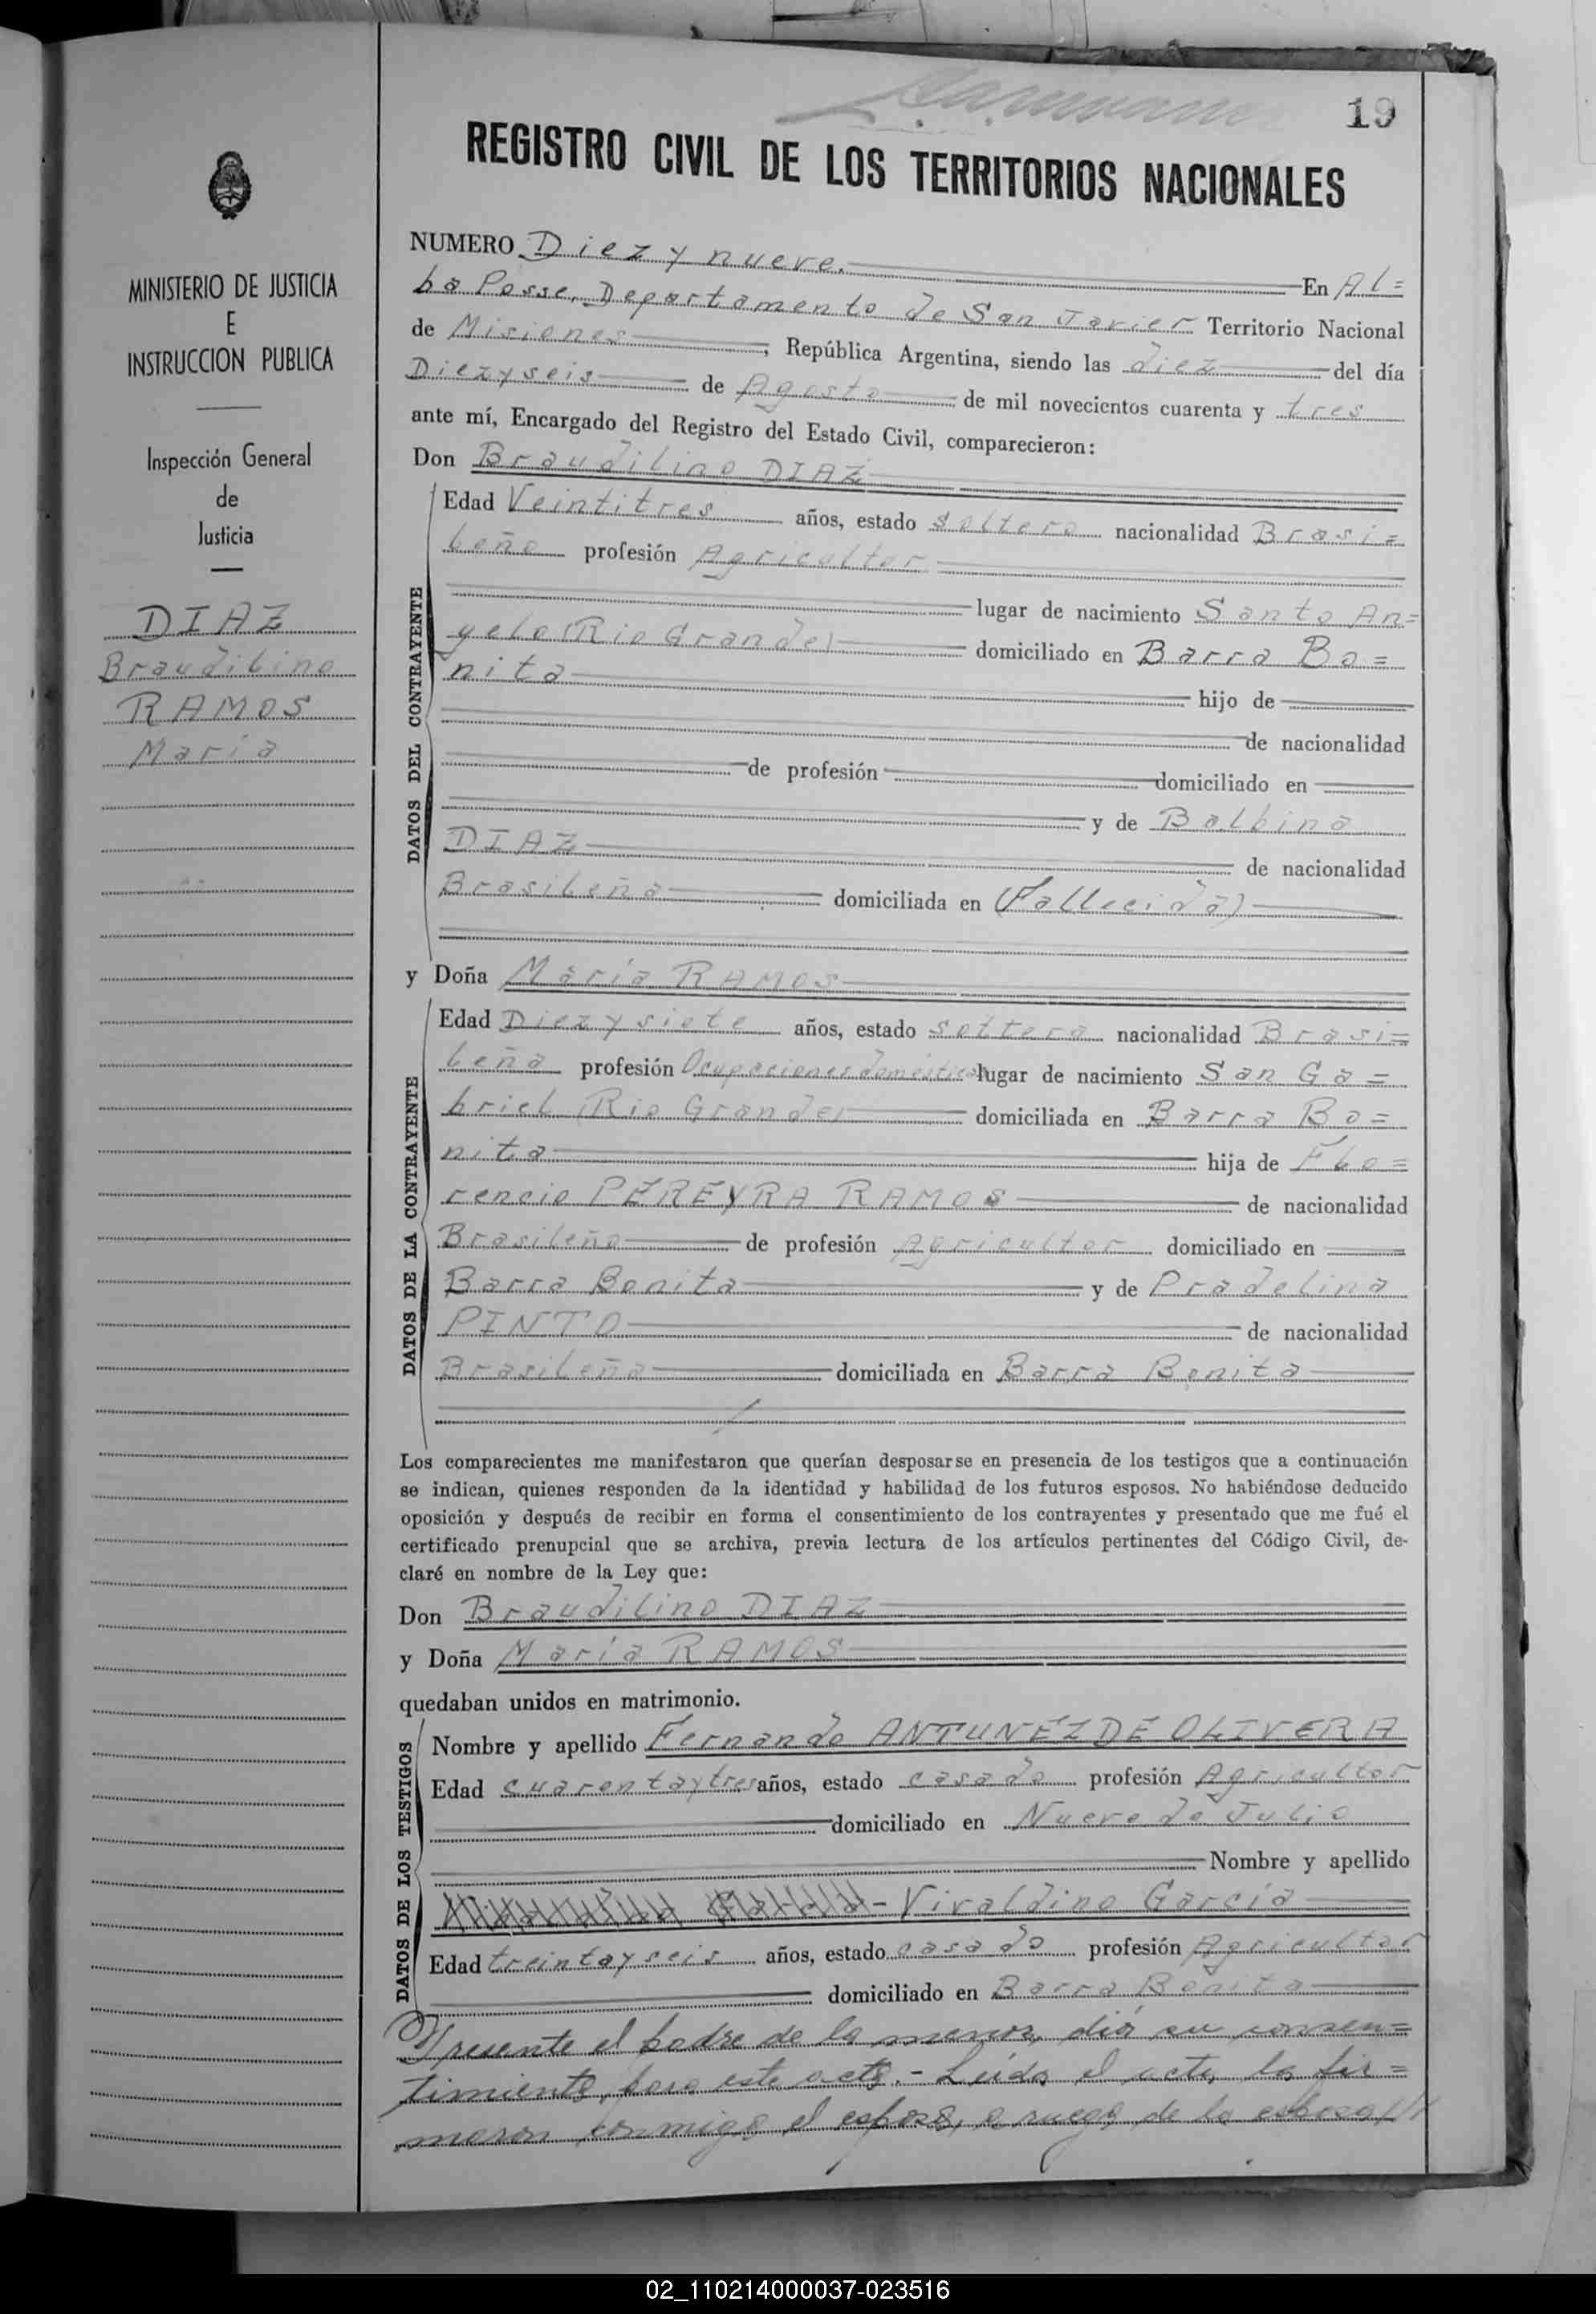 19
REGISTRO CIVIL DE LOS TERRITORIOS NACIONALES
MINISTERIO DE JUSTICIA
E
INSTRUCCION PUBLICA
Inspección General
de
Justicia
DIAZ
Braudilino
RAMOS
María
NUMERO Diez y nueve. En Al=
ba Posse, Departamento de San Javier Territorio Nacional
de Misiones, República Argentina, siendo las diez del día
Diezyseis de Agosto de mil novecientos cuarenta y tres
ante mí, Encargado del Registro del Estado Civil, comparecieron:
Don Braudilino DIAZ
DATOS DEL CONTRAYENTE
Edad Veintitres años, estado soltero nacionalidad Brasi=
leño profesión Agricultor
lugar de nacimiento Santo An=
gelo (Rio Grande) domiciliado en Barra Bo=
nita hijo de
de nacionalidad
de profesión domiciliado en
y de Balbina
DIAZ de nacionalidad
Brasileña domiciliada en (Fallecida)
y Doña María RAMOS
DATOS DE LA CONTRAYENTE
Edad Diezysiete años, estado soltera nacionalidad Brasi=
leña profesión Ocupaciones domésticas lugar de nacimiento San Ga=
briel (Rio Grande) domiciliada en Barra Bo=
nita hija de Flo=
rencio PEREYRA RAMOS de nacionalidad
Brasileño de profesión Agricultor domiciliado en
Barra Bonita y de Pradelina
PINTO de nacionalidad
Brasileña domiciliada en Barra Bonita
Los comparecientes me manifestaron que querían desposarse en presencia de los testigos que a continuación
se indican, quienes responden de la identidad y habilidad de los futuros esposos. No habiéndose deducido
oposición y después de recibir en forma el consentimiento de los contrayentes y presentado que me fué el
certificado prenupcial que se archiva, previa lectura de los artículos pertinentes del Código Civil, de-
claré en nombre de la Ley que:
Don Braudilino DIAZ
y Doña María RAMOS
quedaban unidos en matrimonio.
DATOS DE LOS TESTIGOS
Nombre y apellido Fernando ANTUNEZ DE OLIVERA
Edad cuarentaytres años, estado casado profesión Agricultor
domiciliado en Nueve de Julio
Nombre y apellido
- Viraldino García
Edad treintayseis años, estado casado profesión Agricultor
domiciliado en Barra Bonita
Presente el padre de la menor, dió su consen=
timiento para este acto.- Leida el acta, la fir=
maron conmigo el esposo, a ruego de la esposa///
02_110214000037-023516